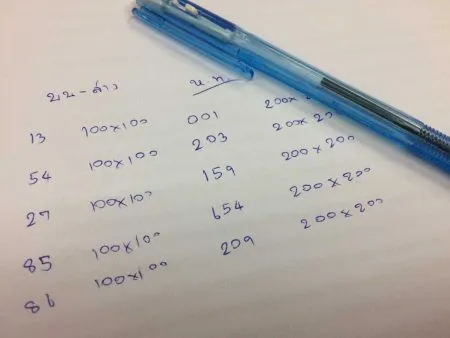 บน-ล่าง
13 100x100 001 200x2
54 100x100 203 200x20
27 100x100 159 200x200
85 100x100 654 200x200
86 100x100 209 200x200